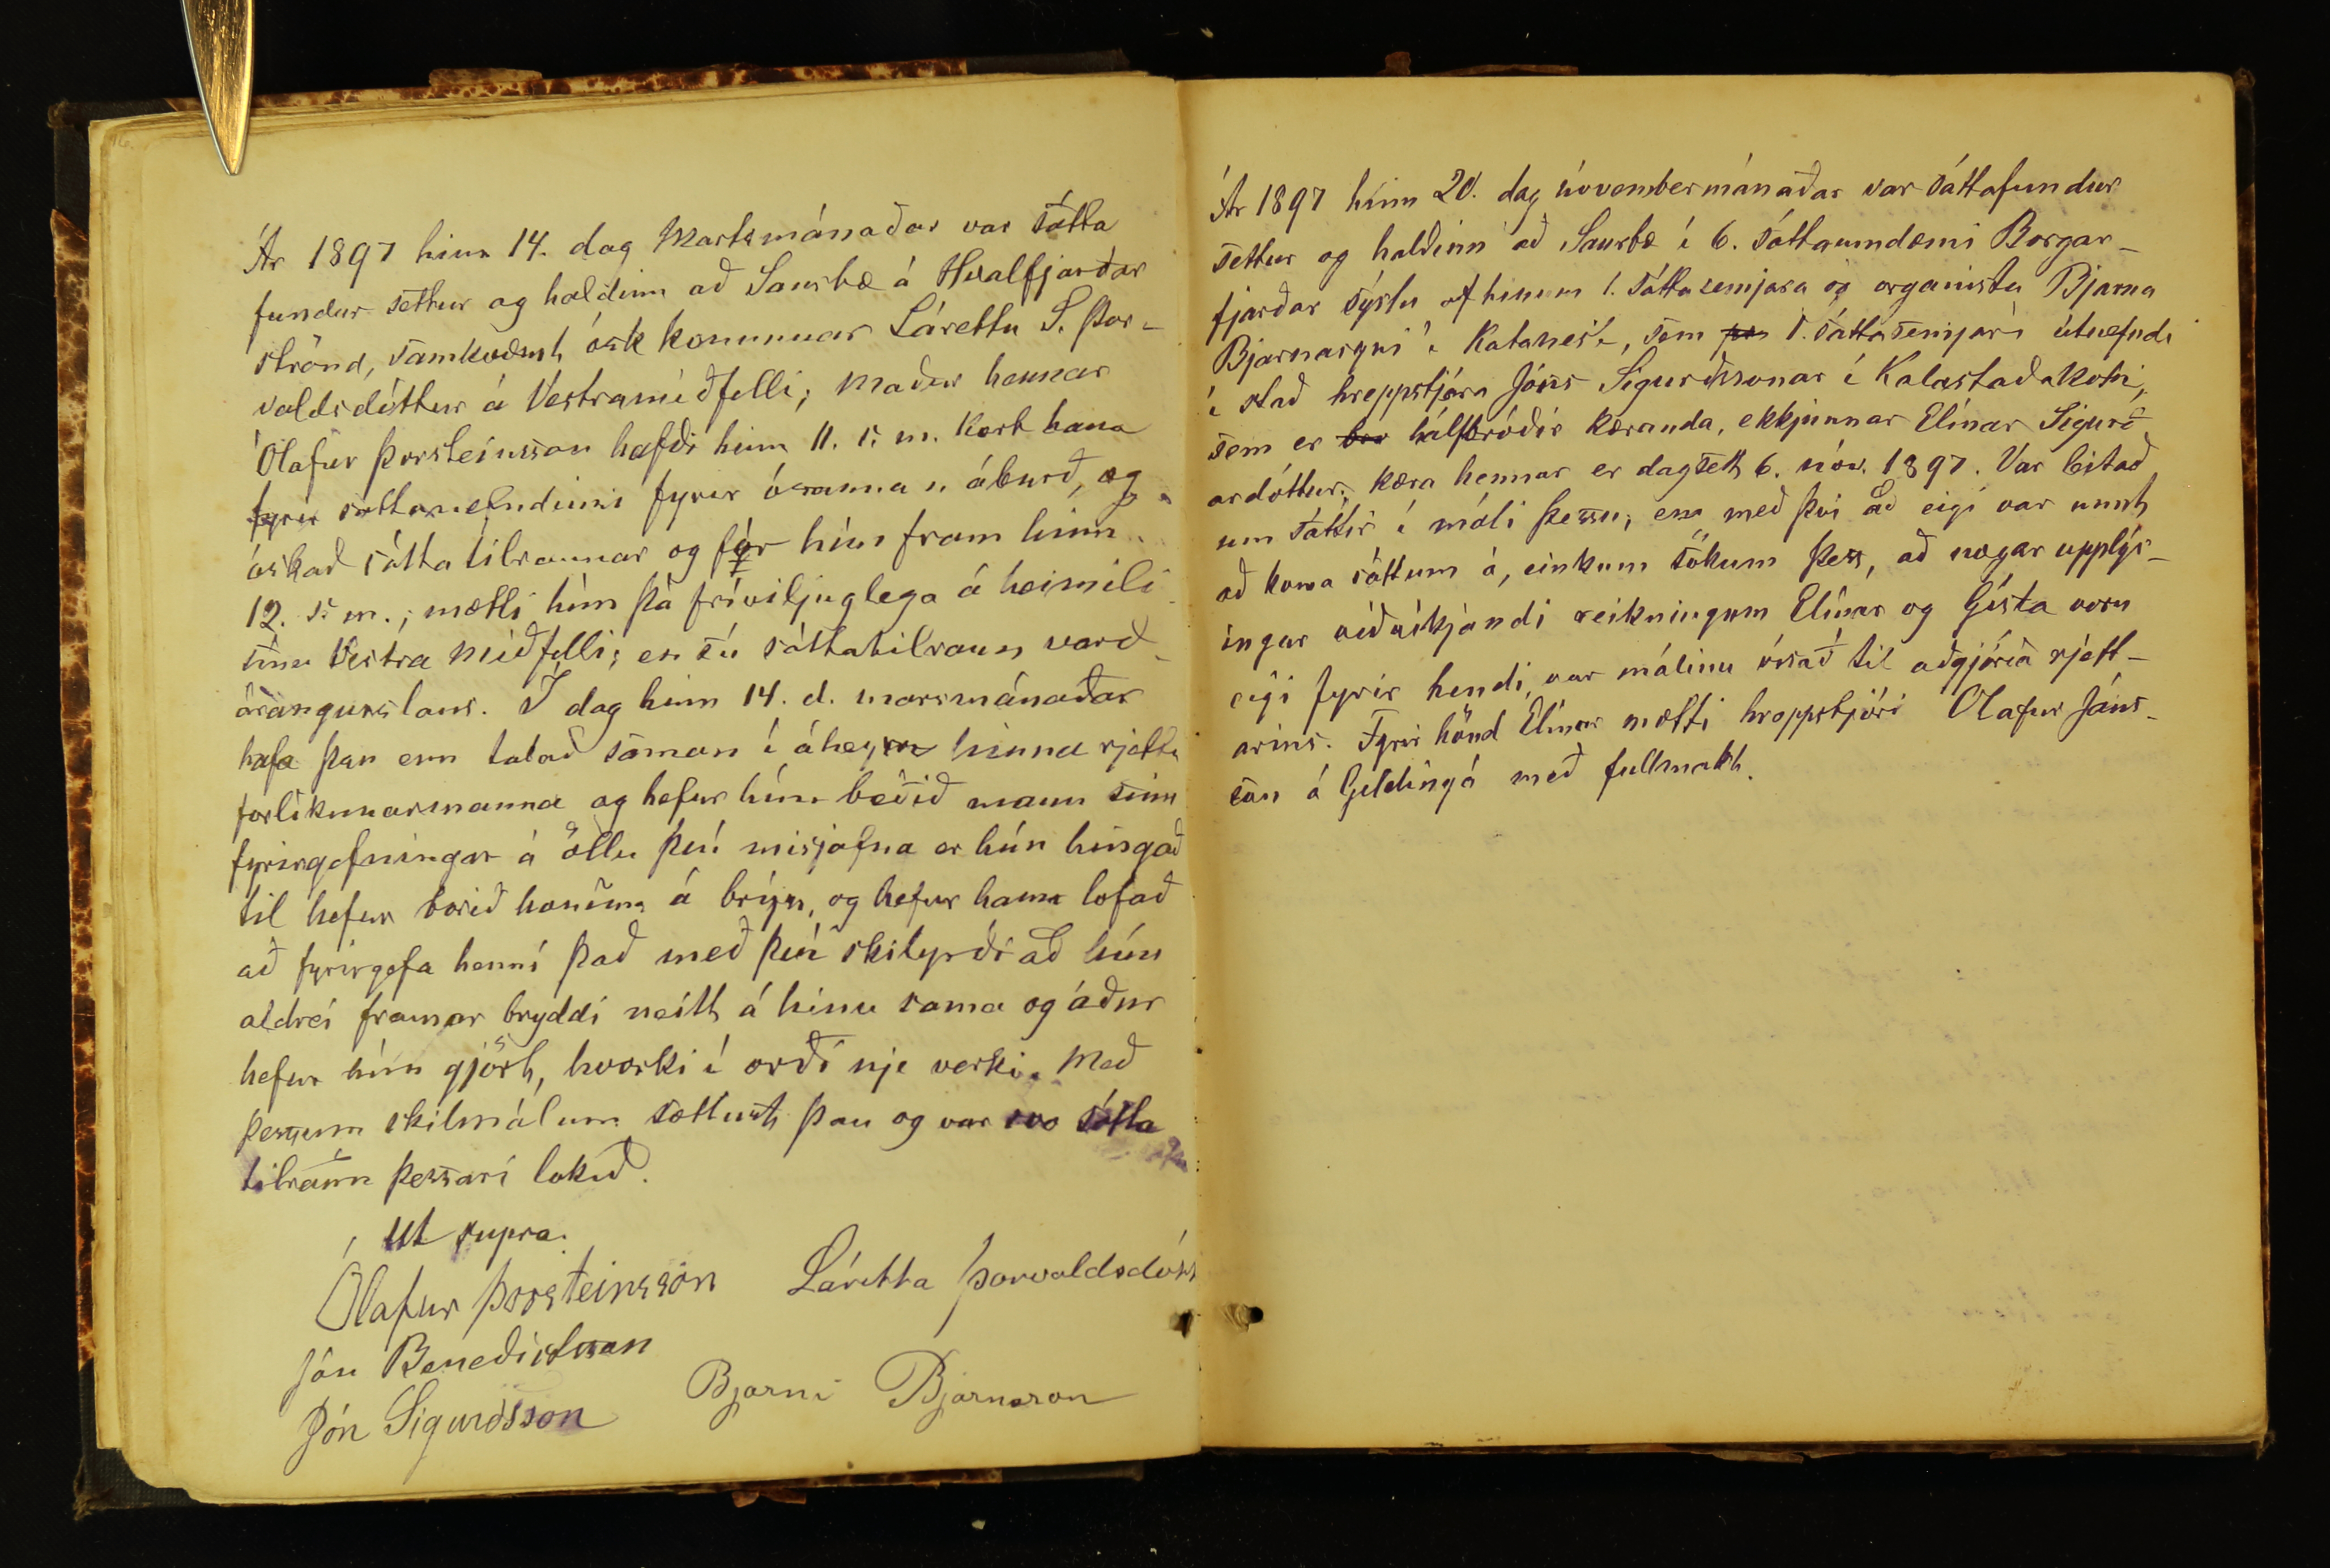 16.
Ár 1897 hinn 14. dag Martsmánaðar var sátta
fundur settur og haldinn að Saurbæ á Hvalfjarðar
strönd, samkvæmt ósk konunnar Lárettu S. Þor-
valdsdóttur á Vestramiðfelli; maður hennar
Ólafur Þorsteinsson hafði hinn 11. s. m. kært hana
fyrir sáttanefndinni fyrir ósannan áburð, og
óskað sátta tilraunar og fór hún fram hinn
12. s. m.; mætti hún þá fríviljuglega á heimili
sínu Vestra Miðfelli; en sú sáttatilraun varð
árangurslaus. Í dag hinn 14. d. marsmánaðar
hafa þau enn talað saman í áheyrn hinna rjettu
forlikunarmanna og hefur hún beðið mann sinn
fyrirgefningar á öllu því misjafna er hún hingað
til hefur borið honum á brýn, og hefur hann lofað
að fyrirgefa henni það með því skilyrði að hún
aldrei framar bryddi neitt á hinu sama og áður
hefur hún gjört, hvorki í orði nje verki. Með
þessum skilmálum sættust þau og var svo sátta
tilraun þessari lokið.
Ut supra.
Ólafur Þorsteinsson Láretta Þorvaldsdótt
Jón Benediktsson
Jón Sigurðsson Bjarni Bjarnason
Ár 1897 hinn 20. dag nóvembermánaðar var sáttafundur
settur og haldinn að Saurbæ í 6. sáttaumdæmi Borgar-
fjarðar sýslu af hinum 1. sáttasemjara og organista Bjarna
Bjarnasyni í Katanesi, sem 1. sáttasemjari útnefndi
í stað hreppstjóra Jóns Sigurðssonar í Kalastaðakoti,
sem er hálfbróðir kæranda, ekkjunnar Elínar Sigurð
ardóttur; kæra hennar er dagsett 6. nóv. 1897. Var leitað
um sáttir í máli þessu; en með því að eigi var unnt
að koma sáttum á, einkum sökum þess, að nægar upplýs-
ingar viðvíkjandi reikningum Elínar og Gísla voru
eigi fyrir hendi, var málinu vísað til aðgjörða rjett-
arins. Fyrir hönd Elínar mætti hreppstjóri Olafur Jóns-
son á Geldingá með fullmakt.